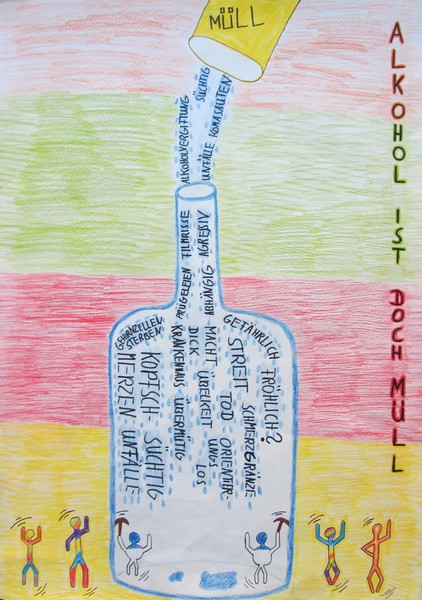 MÜLL
ALKOHOLVERGIFTUNG
SÜCHTIG
UNFÄLLE KOMASAUFEN
PRÜGELEIEN FILMRISSE
ABHÄNGIG AGRESSIV
GEHIRNZELLEN
STERBEN
KOPFSCH-
MERZEN
SÜCHTIG
UNFÄLLE
KRANKENHAUS ÜBERMÜTIG
MACHT
DICK
ÜBELKEIT
GEFÄHRLICH FRÖHLICH?
STREIT SCHMERZGRÄNZE
TOD ORIENTIER-
UNGS
LOS
ALKOHOL IST DOCH MÜLL